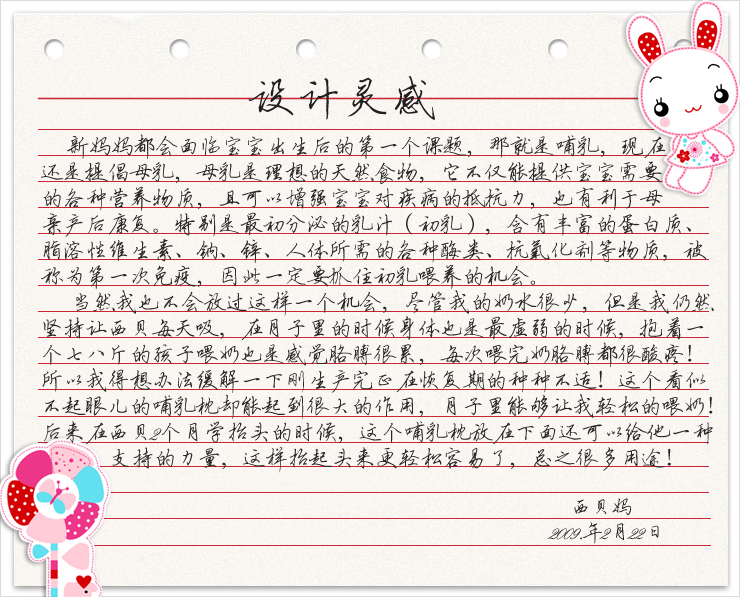 设计灵感
新妈妈都会面临宝宝出生后的第一个课题，那就是哺乳，现在
还是提倡母乳，母乳是理想的天然食物，它不仅能提供宝宝需要
的各种营养物质，且可以增强宝宝对疾病的抵抗力，也有利于母
亲产后康复。特别是最初分泌的乳汁（初乳），含有丰富的蛋白质、
脂溶性维生素、钠、锌、人体所需的各种酶类、抗氧化剂等物质，被
称为第一次免疫，因此一定要抓住初乳喂养的机会。
当然我也不会放过这样一个机会，尽管我的奶水很少，但是我仍然
坚持让西贝每天吸，在月子里的时候身体也是最虚弱的时候，抱着一
个七八斤的孩子喂奶也是感觉胳膊很累，每次喂完奶胳膊都很酸疼！
所以我得想办法缓解一下刚生产完正在恢复期的种种不适！这个看似
不起眼儿的哺乳枕却能起到很大的作用，月子里能够让我轻松的喂奶！
后来在西贝2个月学抬头的时候，这个哺乳枕放在下面还可以给他一种
支持的力量，这样抬起头来更轻松容易了，总之很多用途！
西贝妈
2009.年2月22日